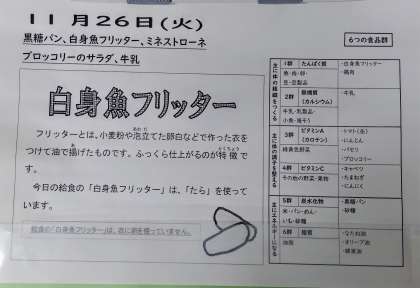 11月26日(火)
黒糖パン、白身魚フリッター、ミネストローネ
ブロッコリーのサラダ、牛乳
白身魚フリッター
フリッターとは、小麦粉や泡立てた卵白などで作った衣を
つけて油で揚げたものです。ふっくら仕上がるのが特徴で
す。
今日の給食の「白身魚フリッター」は、「たら」を使って
います。
給食の「白身魚フリッター」は、衣に卵を使っていません。
6つの食品群
主に体の組織をつくる
1群 たんぱく質
魚・肉・卵・
豆・豆製品
・白身魚フリッター
・鶏肉
2群 無機質
(カルシウム)
牛乳・乳製品
小魚・海そう
・牛乳
主に体の調子を整える
3群 ビタミンA
(カロテン)
緑黄色野菜
・トマト(缶)
・にんじん
・パセリ
・ブロッコリー
4群 ビタミンC
その他の野菜・果物
・キャベツ
・たまねぎ
・にんにく
主にエネルギーになる
5群 炭水化物
米・パン・めん・
いも・砂糖
・黒糖パン
・砂糖
6群 脂質
油脂
・なたね油
・オリーブ油